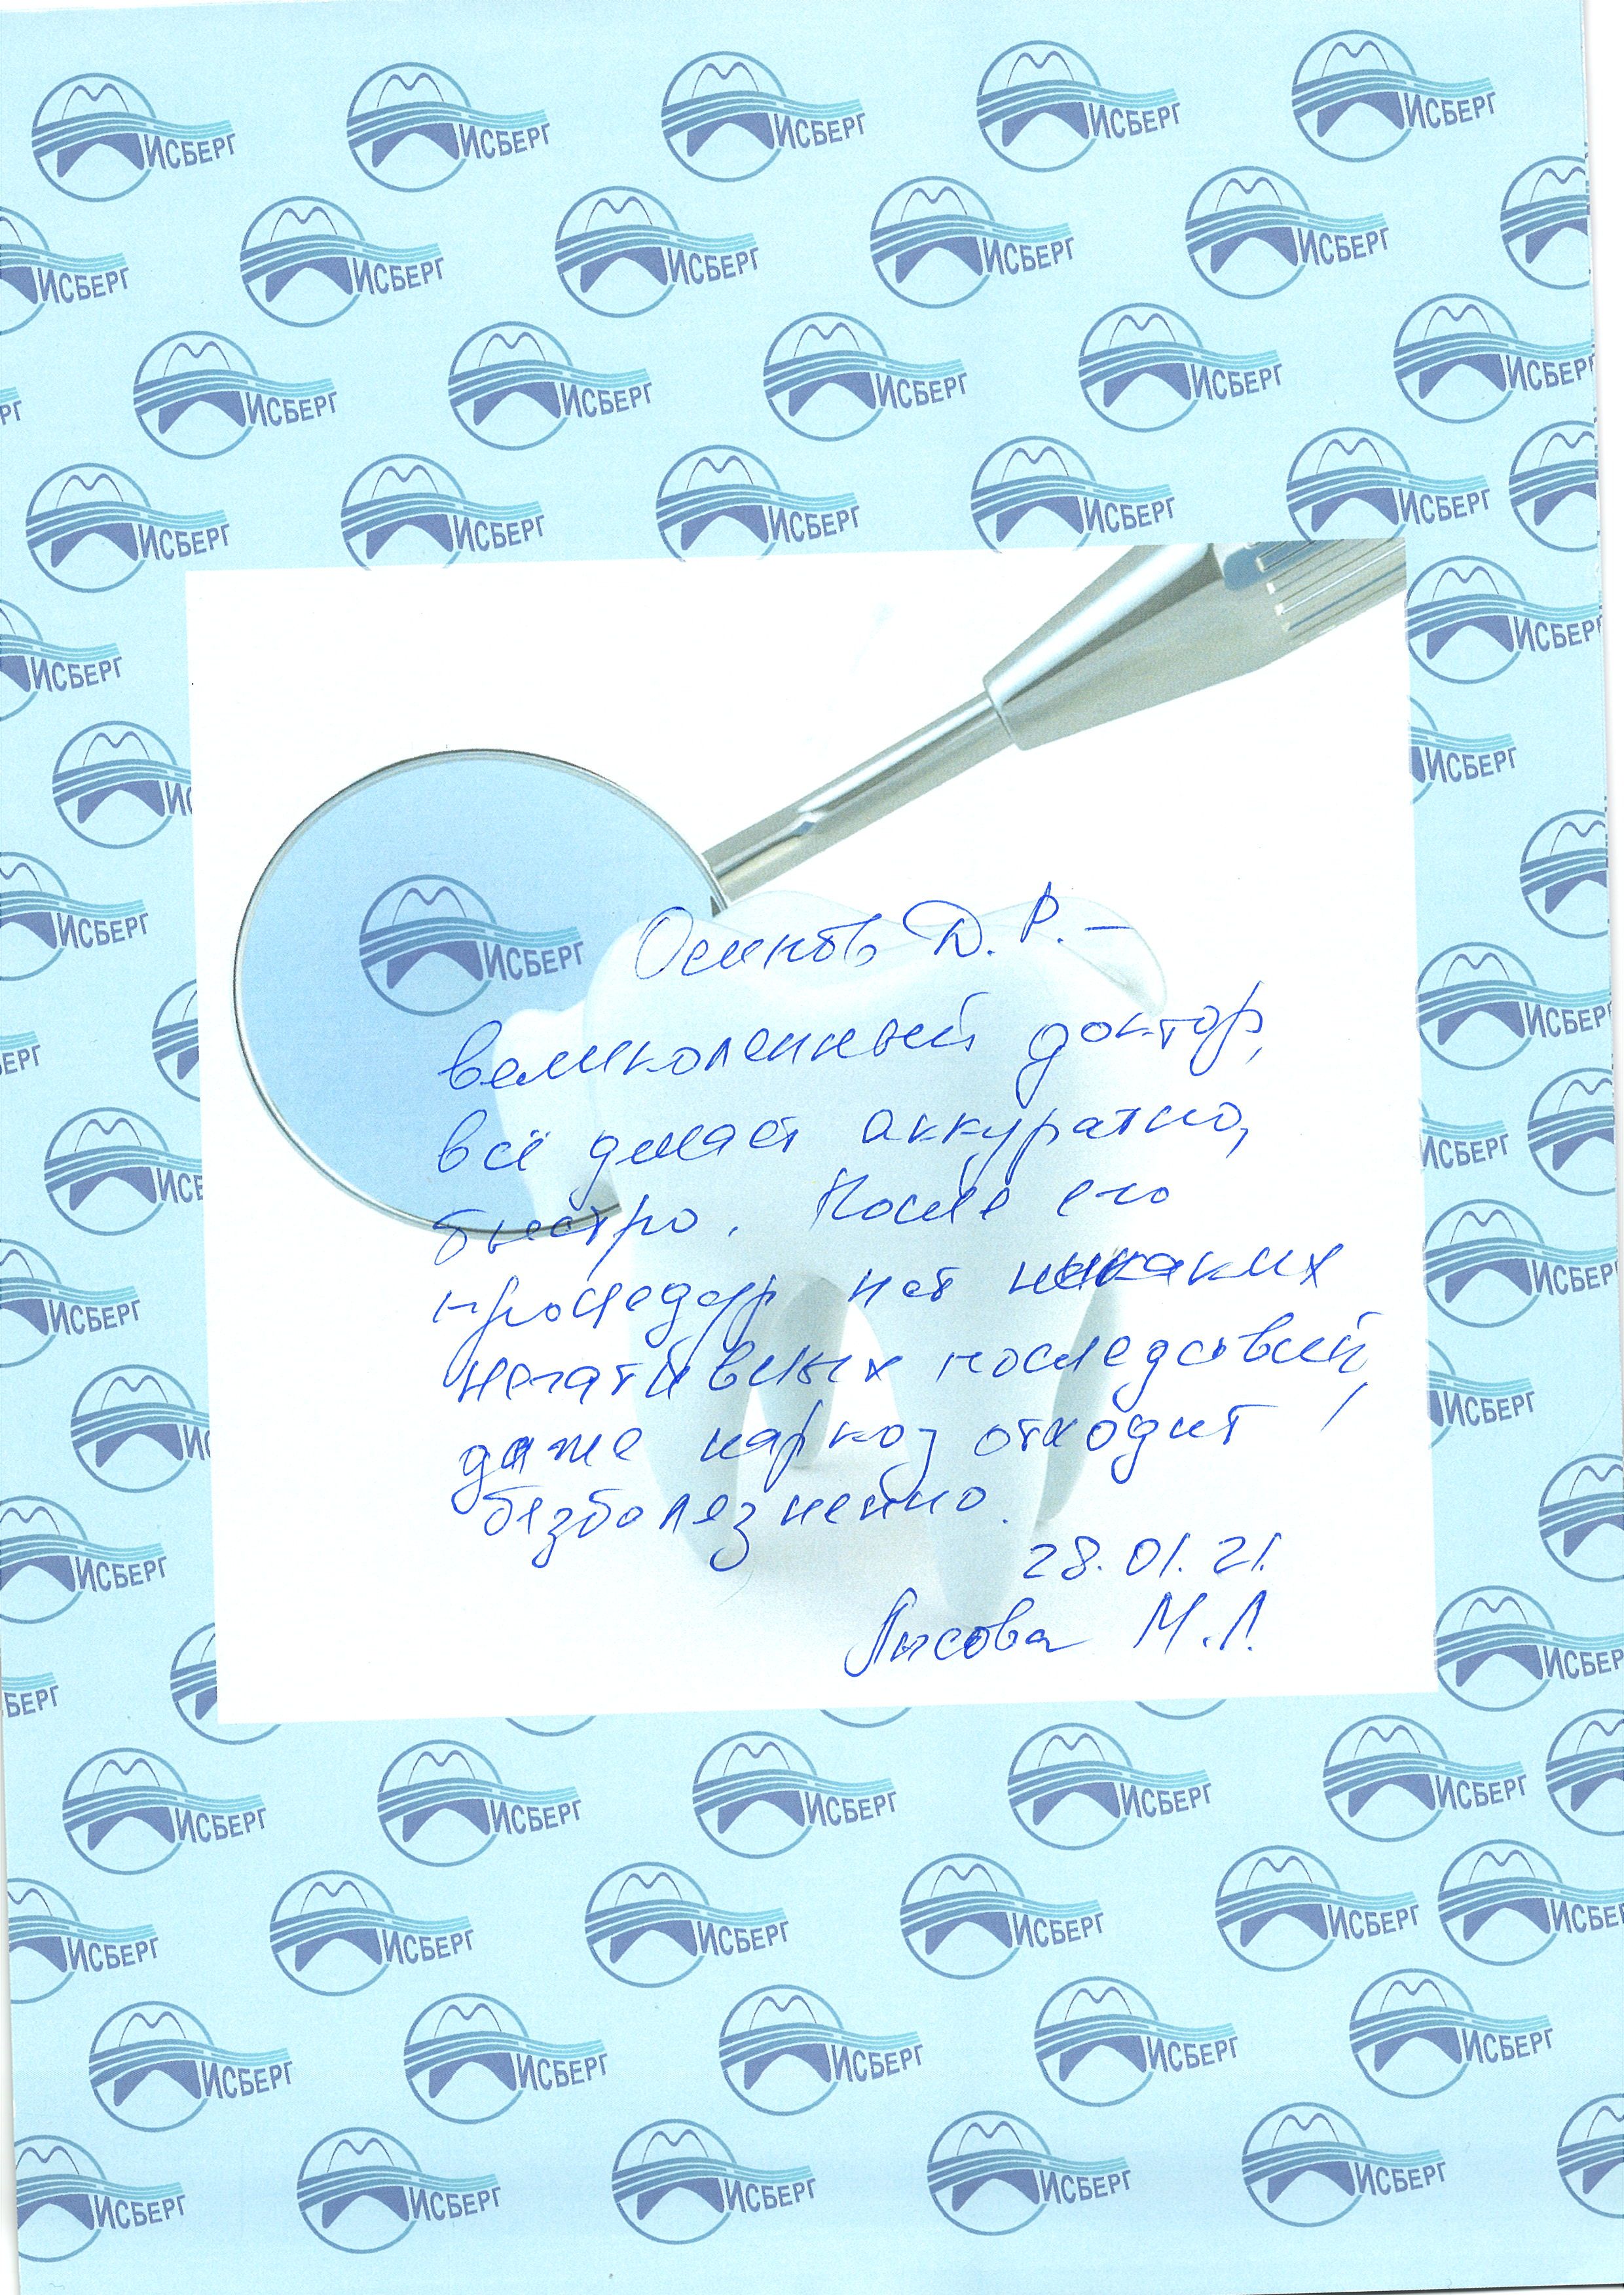 ИСБЕРГ
Осипов Д. Р. –
великолепный доктор,
всё делает аккуратно,
быстро. После его
процедур нет никаких
негативных последствий,
даже наркоз отходит
безболезненно.
28.01.21.
Лысова М.Л.